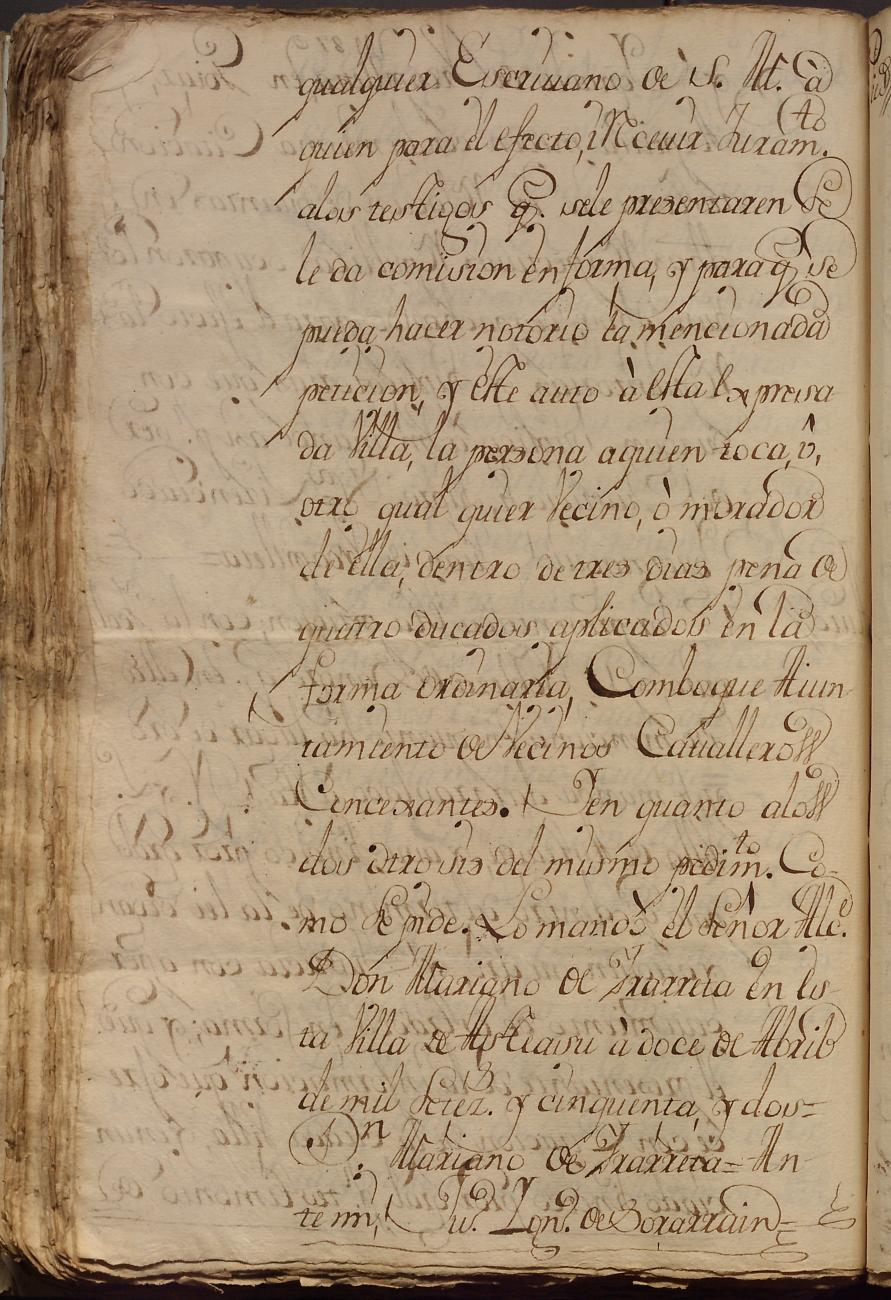 qualquier Escriuano de S. M. à
quien para el efecto, i Reciuir Juram.to
alos testigos q. sele presentaren Se
le da comision en forma, y para q. se
pueda hacer notorio la mencionada
peticion, y este auto à esta Expresa
da Villa, la persona aquien toca, ô,
otro qual quier Vecino, ò morador
de ella, dentro de tres dias pena de
quatro ducados aplicados en la
forma ordinaria, Comboque Aiun
tamiento de Vecinos Caualleros
Concexantes. Y en quanto alos
dos otro sis del mismo pedim.to Co-
mo Se pide. Lo mandò el Señor Alc.e
Don Mariano de Yrarreta en Es-
ta Villa de Asteasu à doce de Abril
de mil Setez.s y cinquenta, y dos=
D.n Mariano de Yrarreta= An
te mi, Ju. Ign.o de Sorarrain=